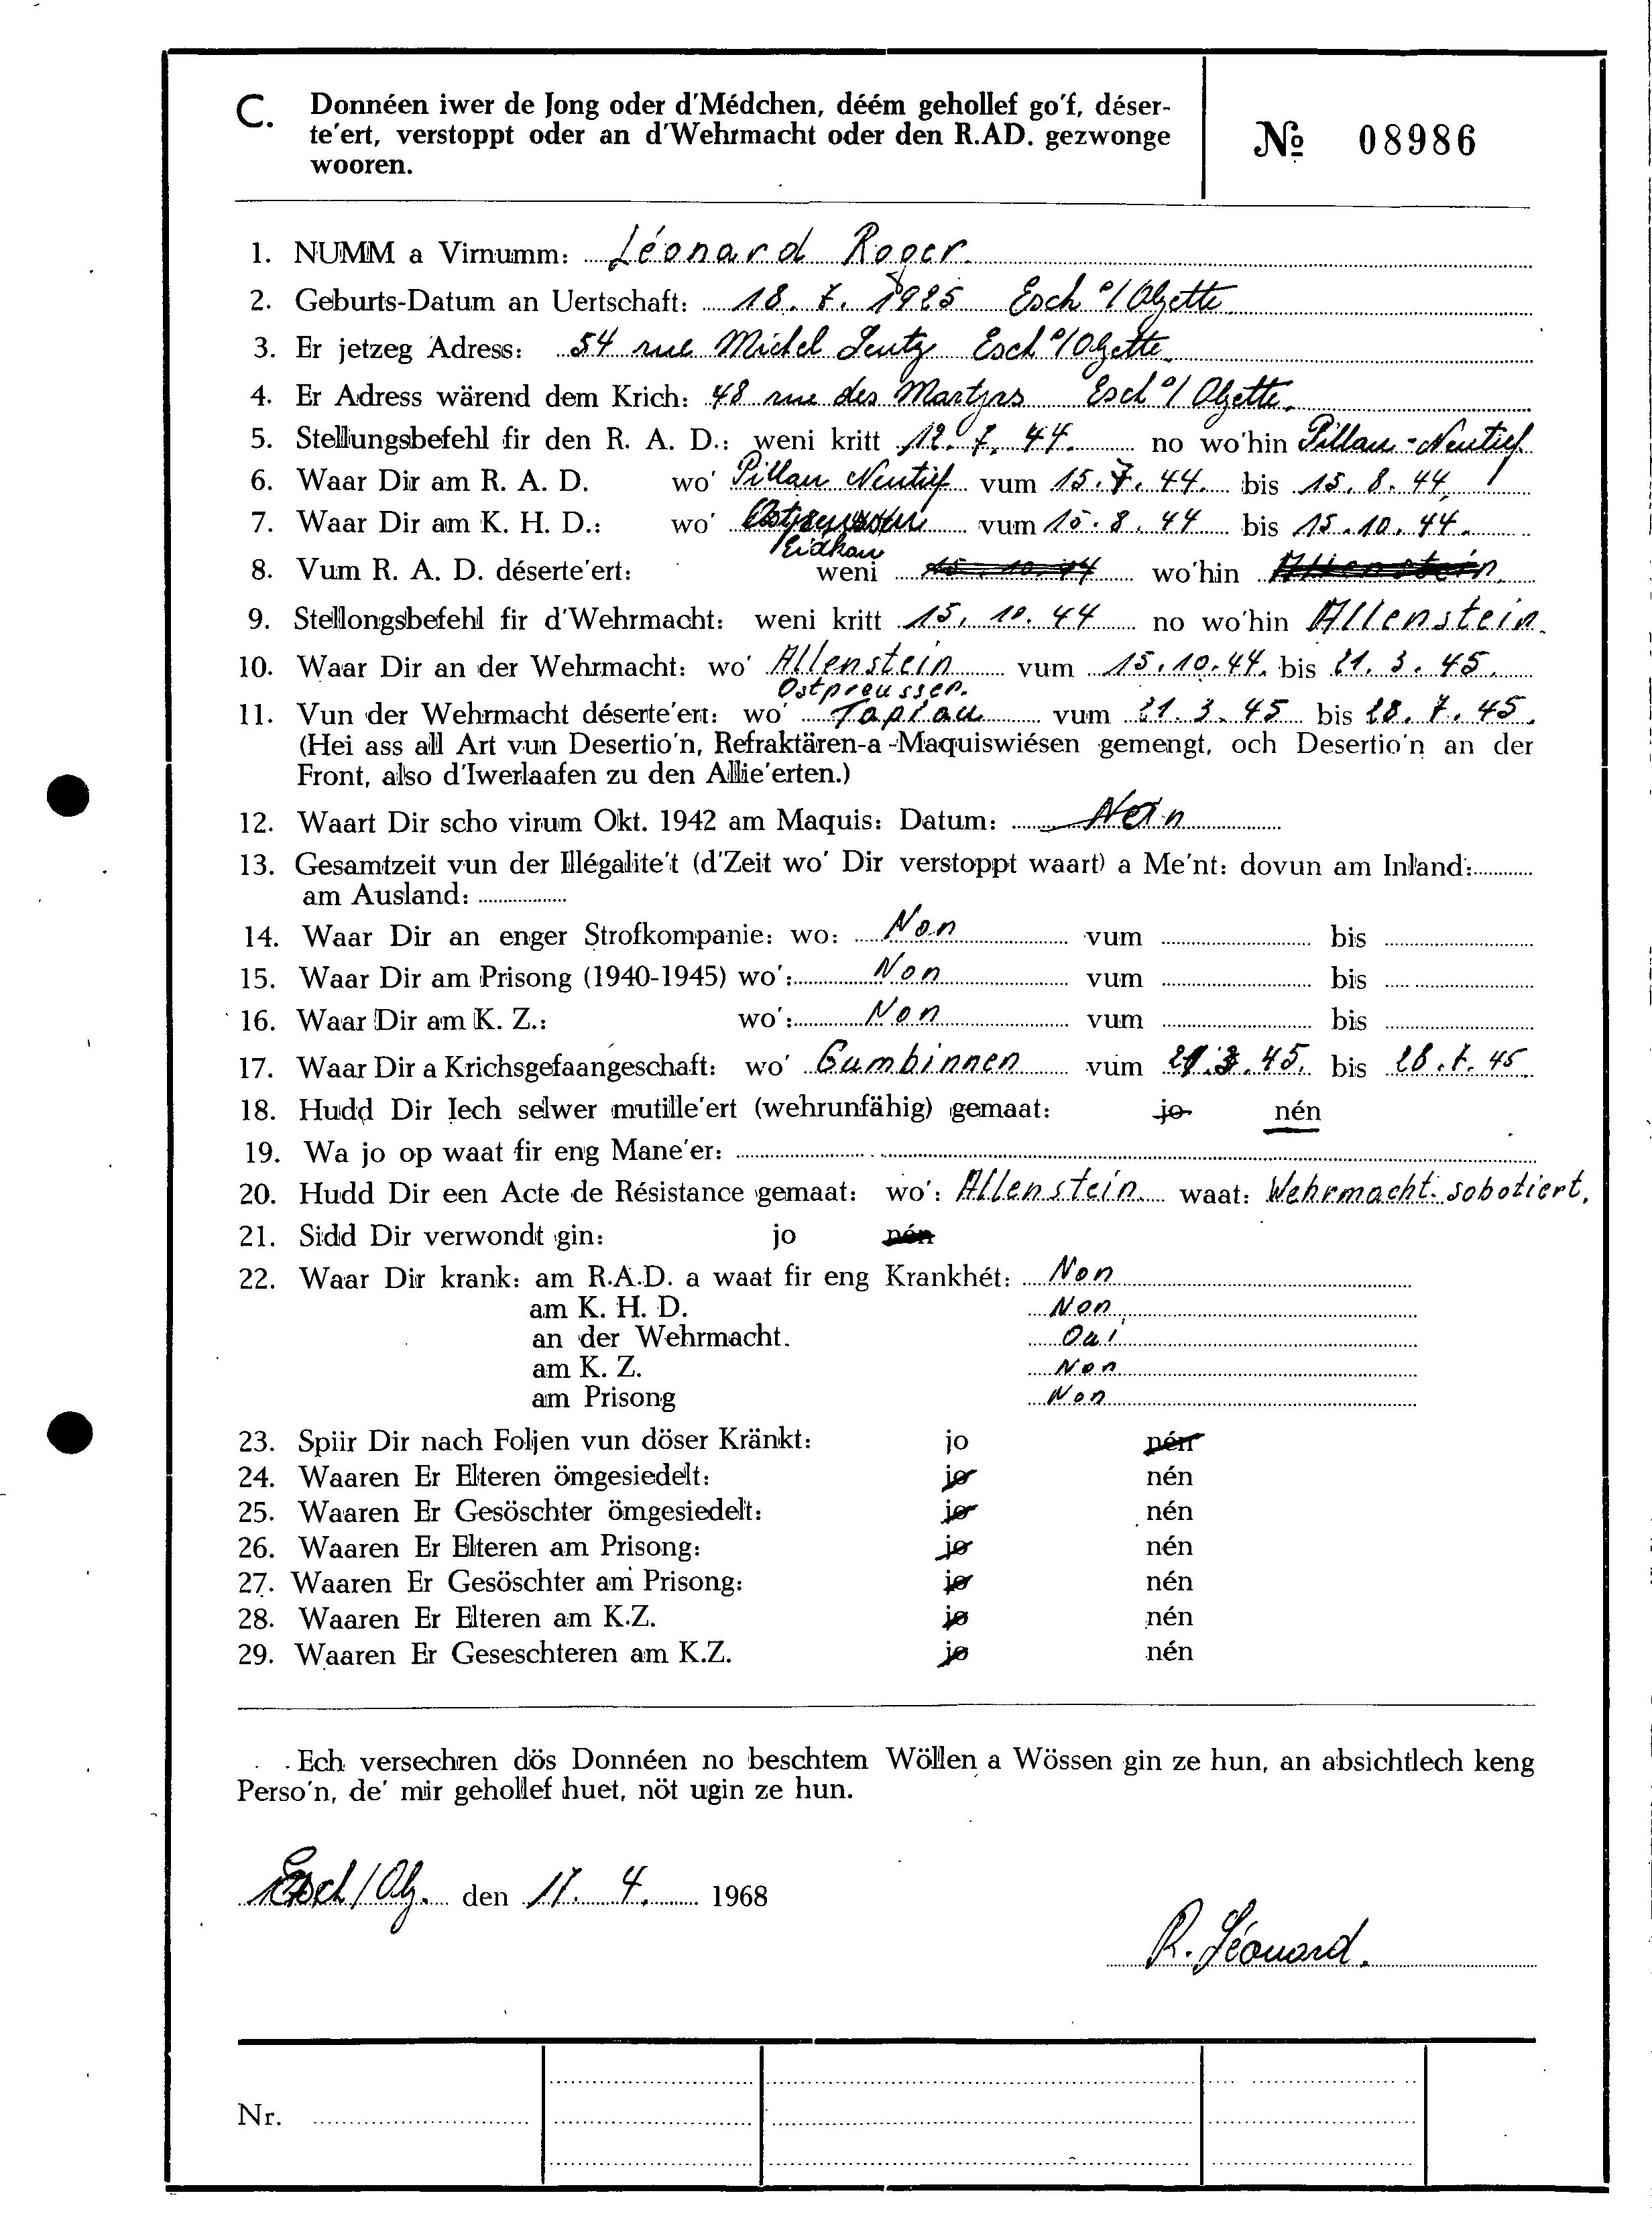 C. Donnéen iwer de Jong oder d'Médchen, déém gehollef go'f, déser-
te'ert, verstoppt oder an d'Wehrmacht oder den R.AD. gezwonge
wooren.
№ 08986
1. NUMM a Virnumm: Léonard Roger.
2. Geburts-Datum an Uertschaft: 18. 7. 1925 Esch a/Alzette
3. Er jetzeg Adress: 54 rue Michel Lentz Esch a/Alzette
4. Er Adress wärend dem Krich: 48 rue des Martyrs Esch a/Alzette.
5. Stellungsbefehl fir den R. A. D.: weni kritt 12. 7. 44. no wo'hin Pillau-Neutief
6. Waar Dir am R. A. D. wo' Pillau Neutief vum 15. 7. 44. bis 15. 8. 44.
7. Waar Dir am K. H. D.: wo' vum 15. 8. 44 bis 15. 10. 44.
Eidkau
8. Vum R. A. D. déserte'ert: weni 15. 10. 44 wo'hin Allenstein
9. Stellongsbefehl fir d'Wehrmacht: weni kritt 15. 10. 44 no wo'hin Allenstein.
10. Waar Dir an der Wehrmacht: wo' Allenstein vum 15. 10. 44. bis 21. 3. 45.
Ostpreussen.
11. Vun der Wehrmacht déserte'ert: wo' Tapiau vum 21. 3. 45 bis 28. 7. 45.
(Hei ass all Art vun Desertio'n, Refraktären-a-Maquiswiésen gemengt, och Desertio'n an der
Front, also d'Iwerlaafen zu den Allie'erten.)
12. Waart Dir scho virum Okt. 1942 am Maquis: Datum: Nein
13. Gesamtzeit vun der Illégalite't (d'Zeit wo' Dir verstoppt waart) a Me'nt: dovun am Inland:
am Ausland:
14. Waar Dir an enger Strofkompanie: wo: Non vum bis
15. Waar Dir am Prisong (1940-1945) wo': Non vum bis
16. Waar Dir am K. Z.: wo': Non vum bis
17. Waar Dir a Krichsgefaangeschaft: wo' Gumbinnen vum 21. 3. 45. bis 28. 7. 45
18. Hudd Dir Iech selwer mutille'ert (wehrunfähig) gemaat: jo nén
19. Wa jo op waat fir eng Mane'er:
20. Hudd Dir een Acte de Résistance gemaat: wo': Allenstein waat: Wehrmacht sobotiert.
21. Sidd Dir verwondt gin: jo nén
22. Waar Dir krank: am R.A.D. a waat fir eng Krankhét: Non
am K. H. D. Non
an der Wehrmacht. Oui
am K. Z. Non
am Prisong Non
23. Spiir Dir nach Foljen vun döser Kränkt: jo nén
24. Waaren Er Elteren ömgesiedelt: jo nén
25. Waaren Er Gesöschter ömgesiedelt: jo nén
26. Waaren Er Elteren am Prisong: jo nén
27. Waaren Er Gesöschter am Prisong: jo nén
28. Waaren Er Elteren am K.Z. jo nén
29. Waaren Er Geseschteren am K.Z. jo nén
Ech versechren dös Donnéen no beschtem Wöllen a Wössen gin ze hun, an absichtlech keng
Perso'n, de' mir gehollef huet, nöt ugin ze hun.
Esch/Alz. den 11. 4. 1968
R. Léonard.
Nr.